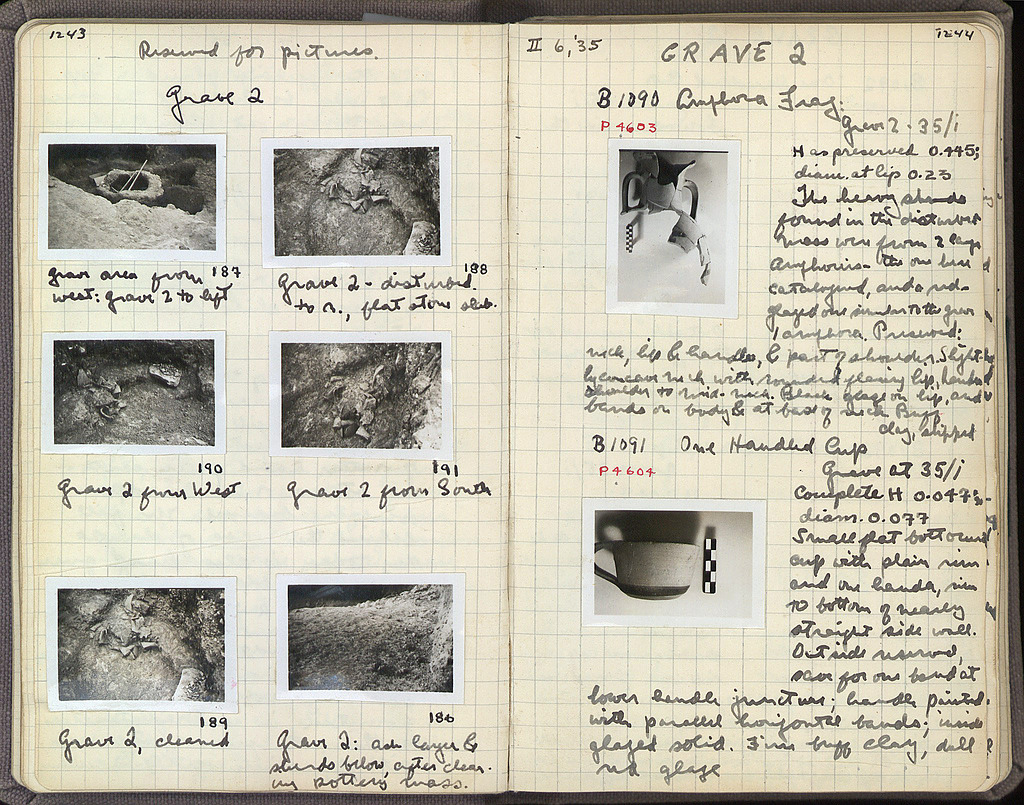 1243
Reserved for pictures.
Grave 2
187
grave area from
west: grave 2 to left
188
Grave 2 - disturbed.
to r., flat stone slab.
190
Grave 2 from West
191
Grave 2 from South
189
Grave 2, cleaned
186
Grave 2: ash layer &
sherds below, after clear-
ing pottery mass.
II 6,'35
GRAVE 2
1244
B 1090 Amphora Frag:
P 4603
Grave 2 - 35/i
H as preserved 0.445;
diam. at lip 0.23
The heavy sherds
found in the disturbed
mass were from 2 large
Amphoras - the one here
catalogued, and a red-
glazed one similar to the grave
1 amphora. Preserved:
neck, lip & handles, & part of shoulder. Slight-
ly concave neck with rounded flaring lip, handles
shoulder to mid-neck. Black glaze on lip, and
bands on body & at base of neck Buff
clay, slipped
B 1091 One Handled Cup
P 4604
Grave at 35/i
Complete H 0.047;
diam. 0.077
Small flat bottomed
cup with plain rim
and one handle, rim
to bottom of nearly
straight side wall.
Outside reserved,
save for one band at
lower handle juncture; handle painted
with parallel horizontal bands; inside
glazed solid. Fine buff clay, dull
red glaze